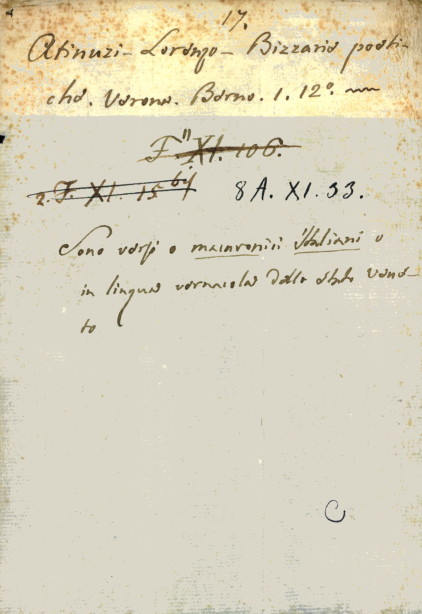 17.
Atinuzi - Lorenzo - Bizzarie poeti-
che. Verona. Berno. 1. 12º.
F. XI. 106.
2. F. XI. 15
8 A. XI. 33.
Sono versi o macaronici Italiani o
in lingua vernacola dello stato Vene-
to
C